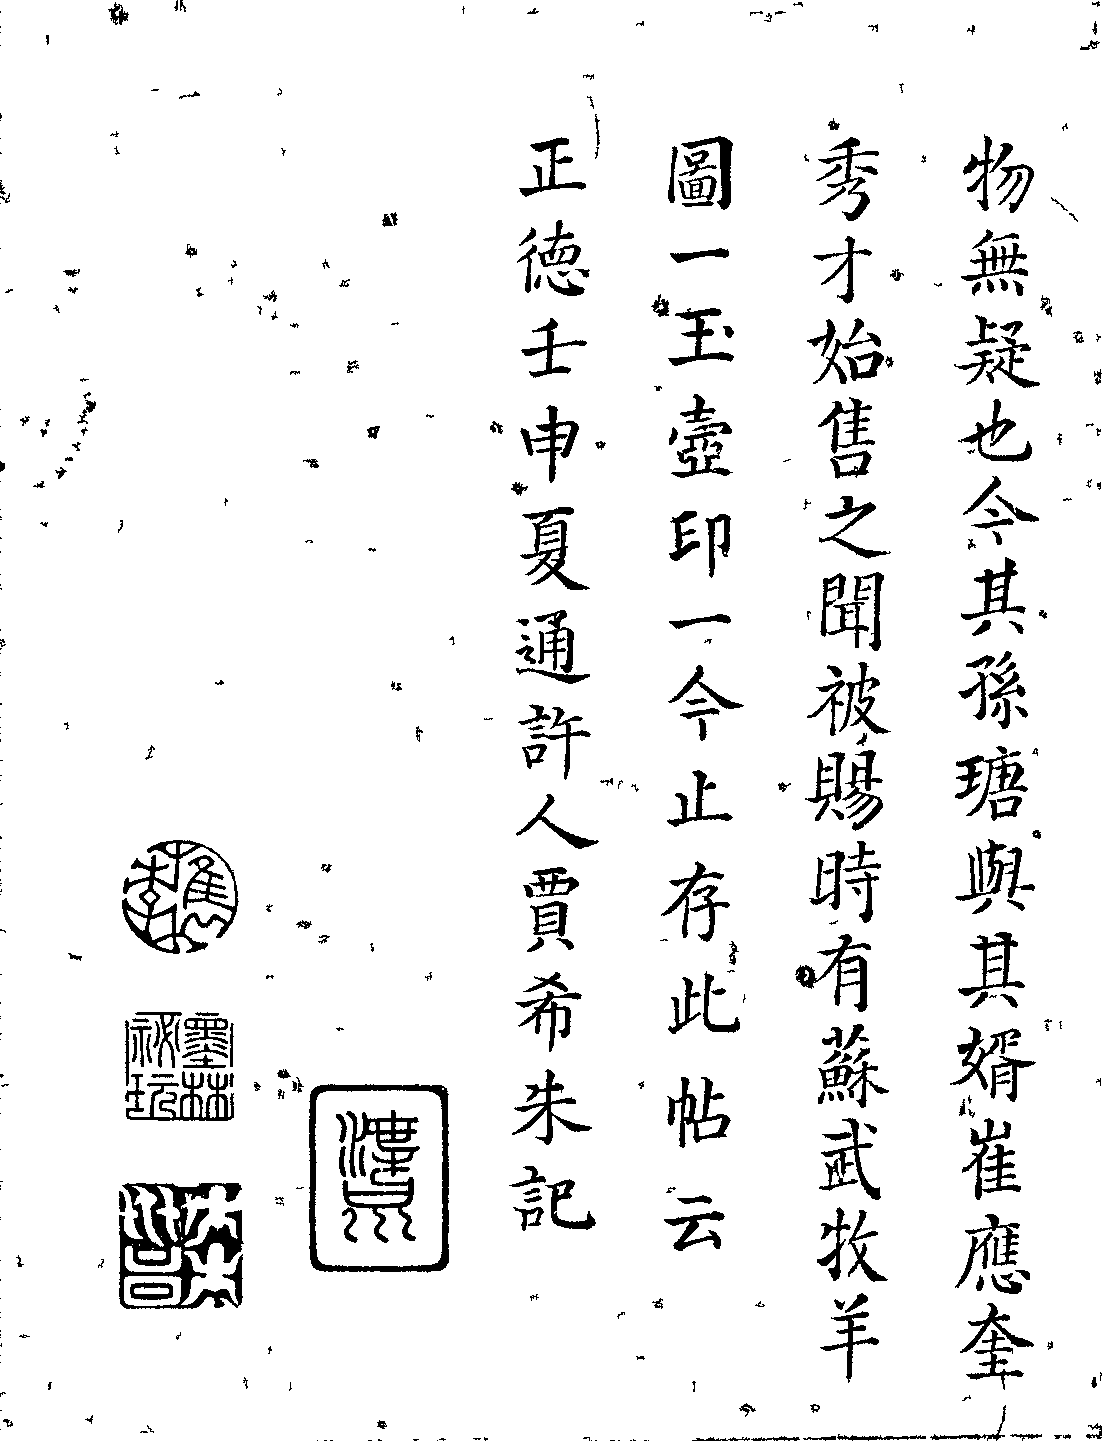 物無疑也今其孫瑭與其婿崔應奎
秀才始售之聞被賜時有蘇武牧羊
圖一玉壺印一今止存此帖云
正德壬申夏通許人賈希朱記
墨林
祕玩